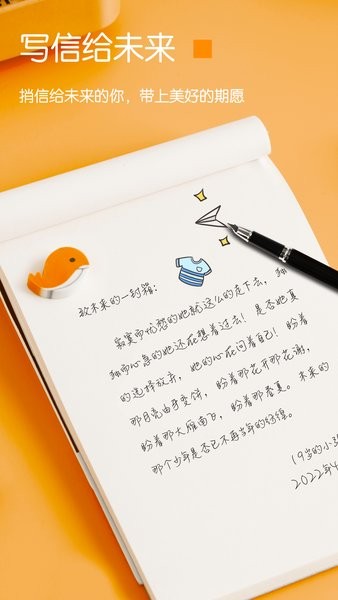 写信给未来
捎信给未来的你，带上美好的期愿
致未来的一封箱：
寂寞而忧愁的她就这么的走下去，
而心急的她还在想着过去！是否她真
的选择放弃，她的心在问着自己！盼着
那月亮由芽变饼，盼着那花开那花谢，
盼着那大雁南飞，盼着那春夏。未来的
那个少年是否已不再当年的
19岁的小
2022年4